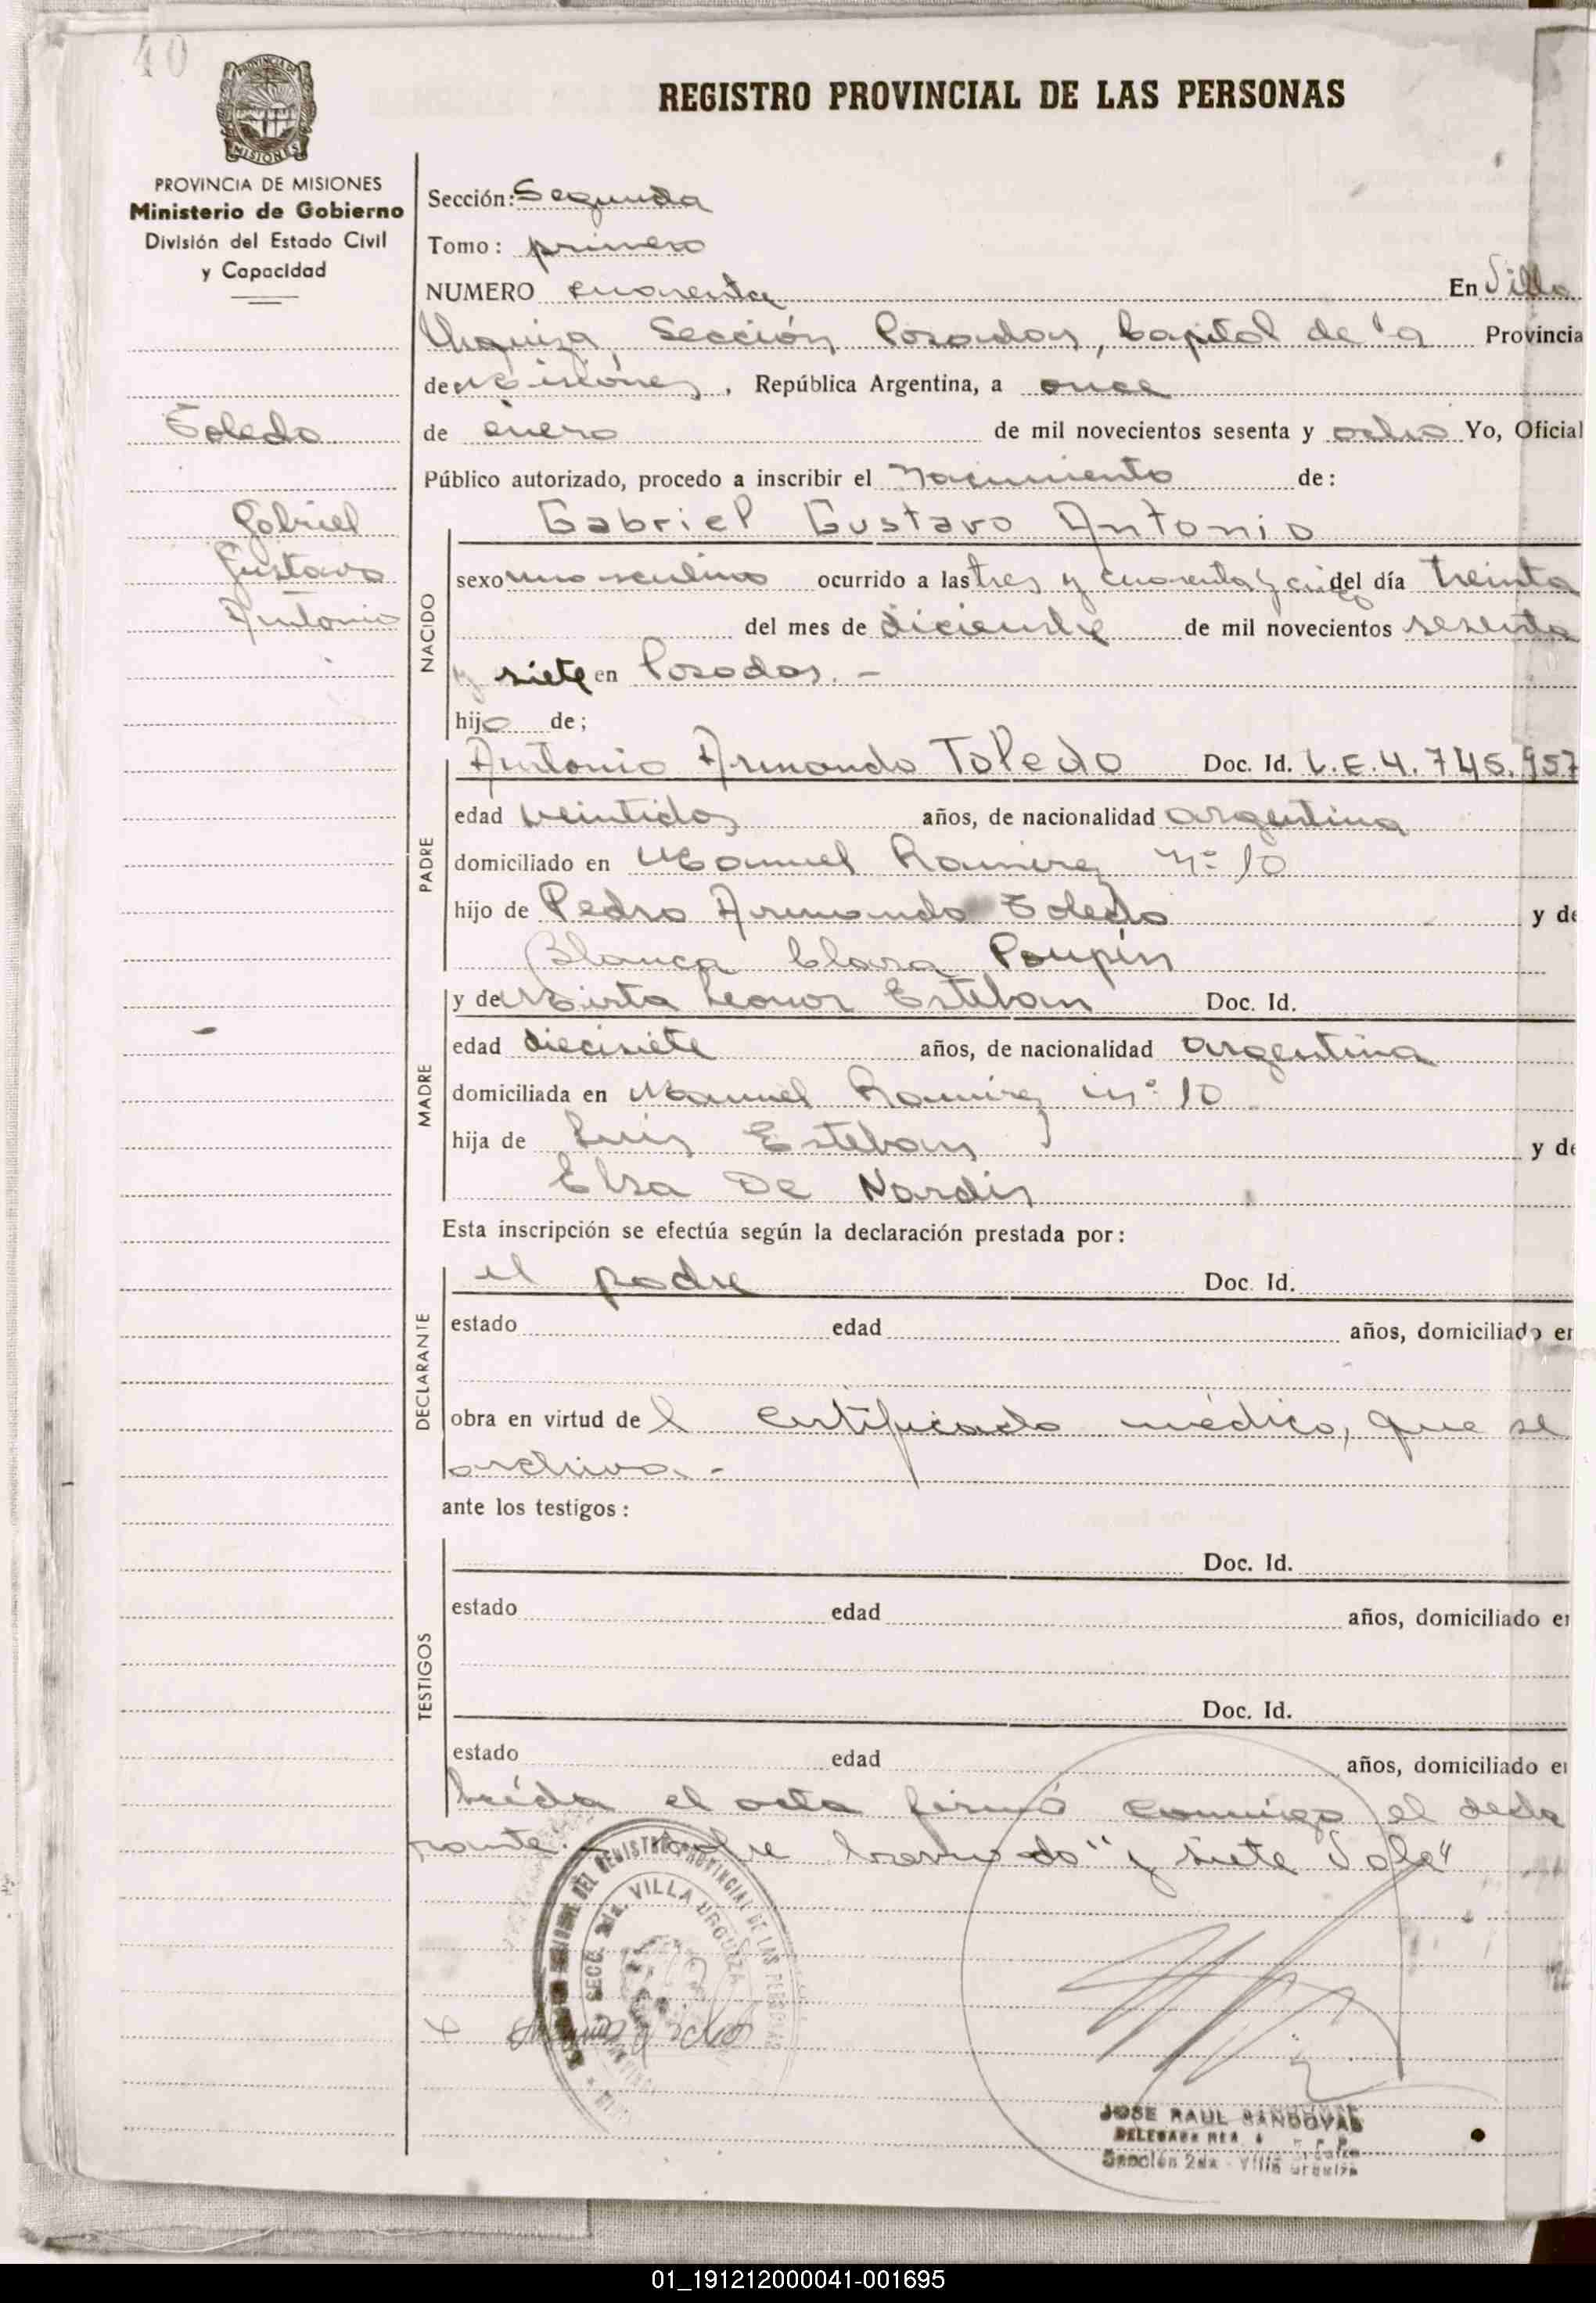 40
REGISTRO PROVINCIAL DE LAS PERSONAS
PROVINCIA DE MISIONES
MISIONES
PROVINCIA DE MISIONES
Ministerio de Gobierno
División del Estado Civil
y Capacidad
Toledo
Gabriel
Gustavo
Antonio
Sección: Segunda
Tomo: primero
NUMERO cuarenta En Villa
Urquiza, Sección Posadas, Capital de la Provincia
de Misiones, República Argentina, a once
de enero de mil novecientos sesenta y ocho Yo, Oficial
Público autorizado, procedo a inscribir el Nacimiento de:
NACIDO
Gabriel Gustavo Antonio
sexo masculino ocurrido a las tres y cuarenta y cinco del día treinta
del mes de diciembre de mil novecientos sesenta
y siete en Posadas. -
hijo de;
PADRE
Antonio Armando Toledo Doc. Id. L.E.4.745.957
edad veintidos años, de nacionalidad argentina
domiciliado en Manuel Ramirez Nº 10
hijo de Pedro Armando Toledo y de
Blanca Clara Poupin
MADRE
y de Mirta Leonor Esteban Doc. Id.
edad diecisiete años, de nacionalidad argentina
domiciliada en Manuel Ramirez nº 10
hija de Luis Esteban y de
Elsa De Nardin
Esta inscripción se efectúa según la declaración prestada por:
DECLARANTE
el padre Doc. Id.
estado edad años, domiciliado en
obra en virtud del certificado médico, que se
archiva. -
ante los testigos:
TESTIGOS
Doc. Id.
estado edad años, domiciliado en
Doc. Id.
estado edad años, domiciliado en
Leída el acta firmó conmigo el decla
rante. Sobre borrado "y siete Vale"
DEL REGISTRO PROVINCIAL DE LAS PERSONAS
SECC. 2da. VILLA URQUIZA
JOSE RAUL SANDOVAL
Sección 2da - Villa Urquiza
01_191212000041-001695